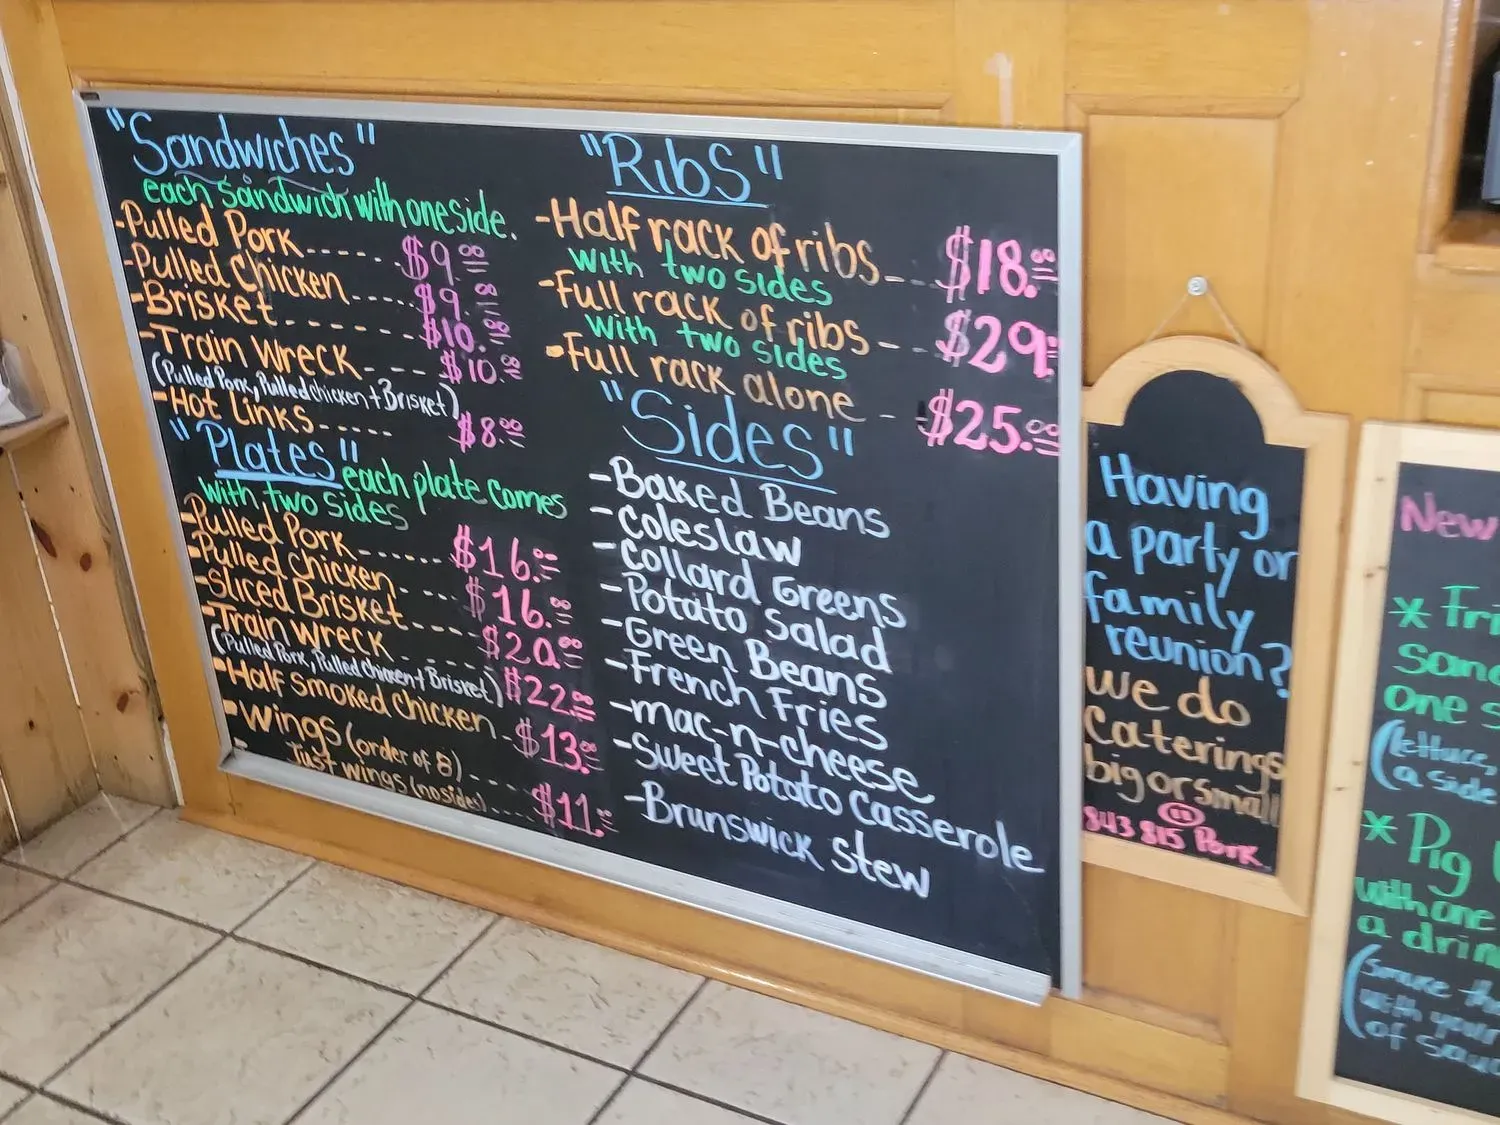 "Sandwiches"
each sandwich with one side.
-Pulled Pork...... $9.00
-Pulled Chicken..... $9.00
-Brisket-------- $10.00
-Train Wreck---- $10.00
(Pulled Pork, Pulled chicken + Brisket)
-Hot Links-..... $8.00
"Plates" each plate comes
with two sides
-Pulled Pork....... $16.00
-Pulled chicken.... $16.00
-Sliced Brisket---- $20.00
-Train wreck...... $22.00
(Pulled Pork, Pulled chicken + Brisket)
-Half smoked chicken - $13.00
-Wings (order of 8)---- $11.00
Just wings (no sides)...
"Ribs"
-Half rack of ribs--- $18.00
with two sides
-Full rack of ribs--- $29
with two sides
-Full rack alone - $25.00
"Sides"
-Baked Beans
-Coleslaw
-Collard Greens
-Potato Salad
-Green Beans
-French Fries
-mac-n-cheese
-Sweet Potato Casserole
-Brunswick stew
Having
a party or
family
reunion?
we do
Caterings
big or small
843 815 Pork
New
* Fri
sand
one s
(lettuce,
a side
* Pig
with one
a drin
(smore th
with your
of sauc